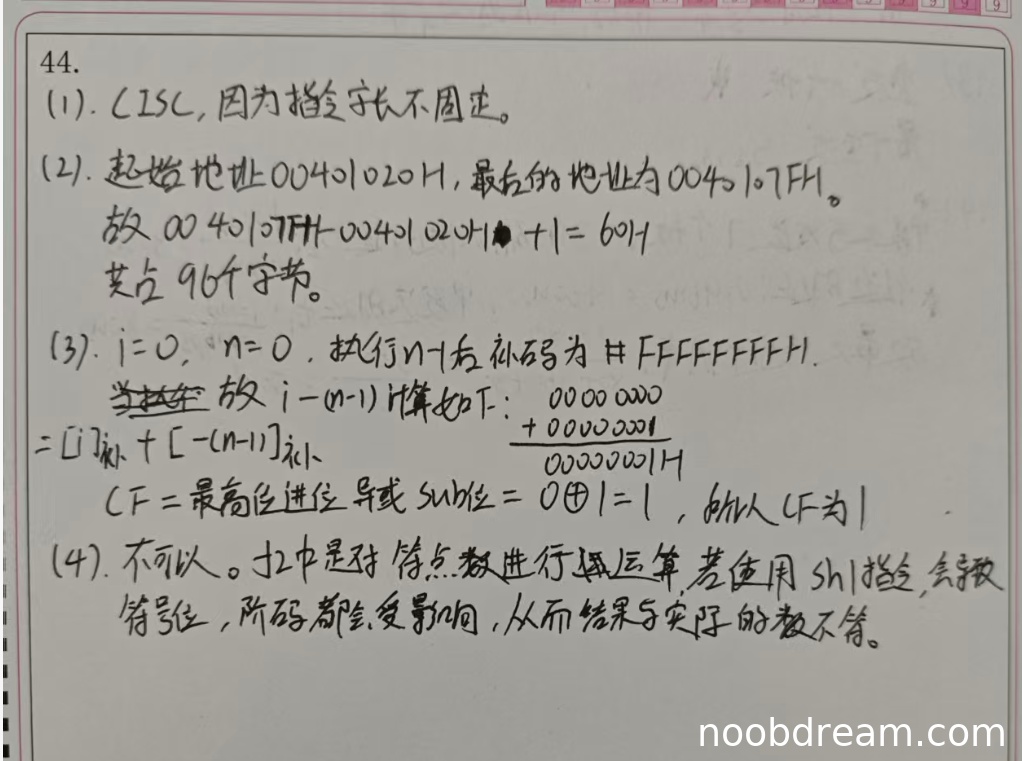 44.
(1). CISC, 因为指令字长不固定。
(2). 起始地址00401020H, 最后的地址为0040107FH。
故 0040107FH-00401020H +1= 60H
共占 96个字节。
(3). i=0, n=0. 执行n-1后补码为 FFFFFFFFH.
故 i-(n-1) 计算如下: 00000000
+ 00000001
=[i]补 + [-(n-1)]补 00000001H
CF = 最高位进位 异或 sub位 = 0⊕1=1, 所以CF为1
(4). 不可以。f2中是对 浮点数进行 运算, 若使用 shl指令, 会导致
符号位, 阶码都会受影响, 从而结果与实际的数不符。
noobdream.com